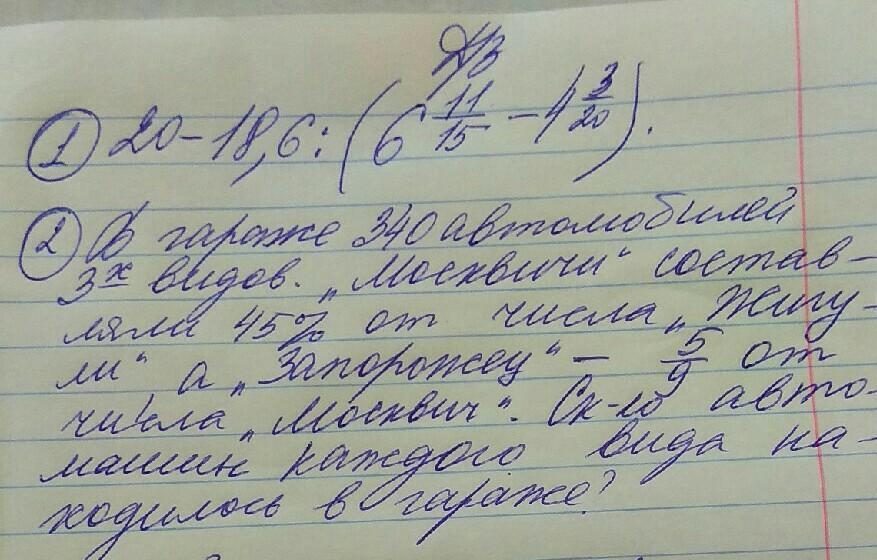 ДЗ
① 20 - 18,6 : (6 11/15 - 4 3/20).
② В гараже 340 автомобилей
3х видов. „Москвичи" состав-
ляли 45% от числа „Жигу-
ли" а „Запорожец" - 5/9 от
числа „Москвич". Ск-ло авто-
машин каждого вида на-
ходилось в гараже?